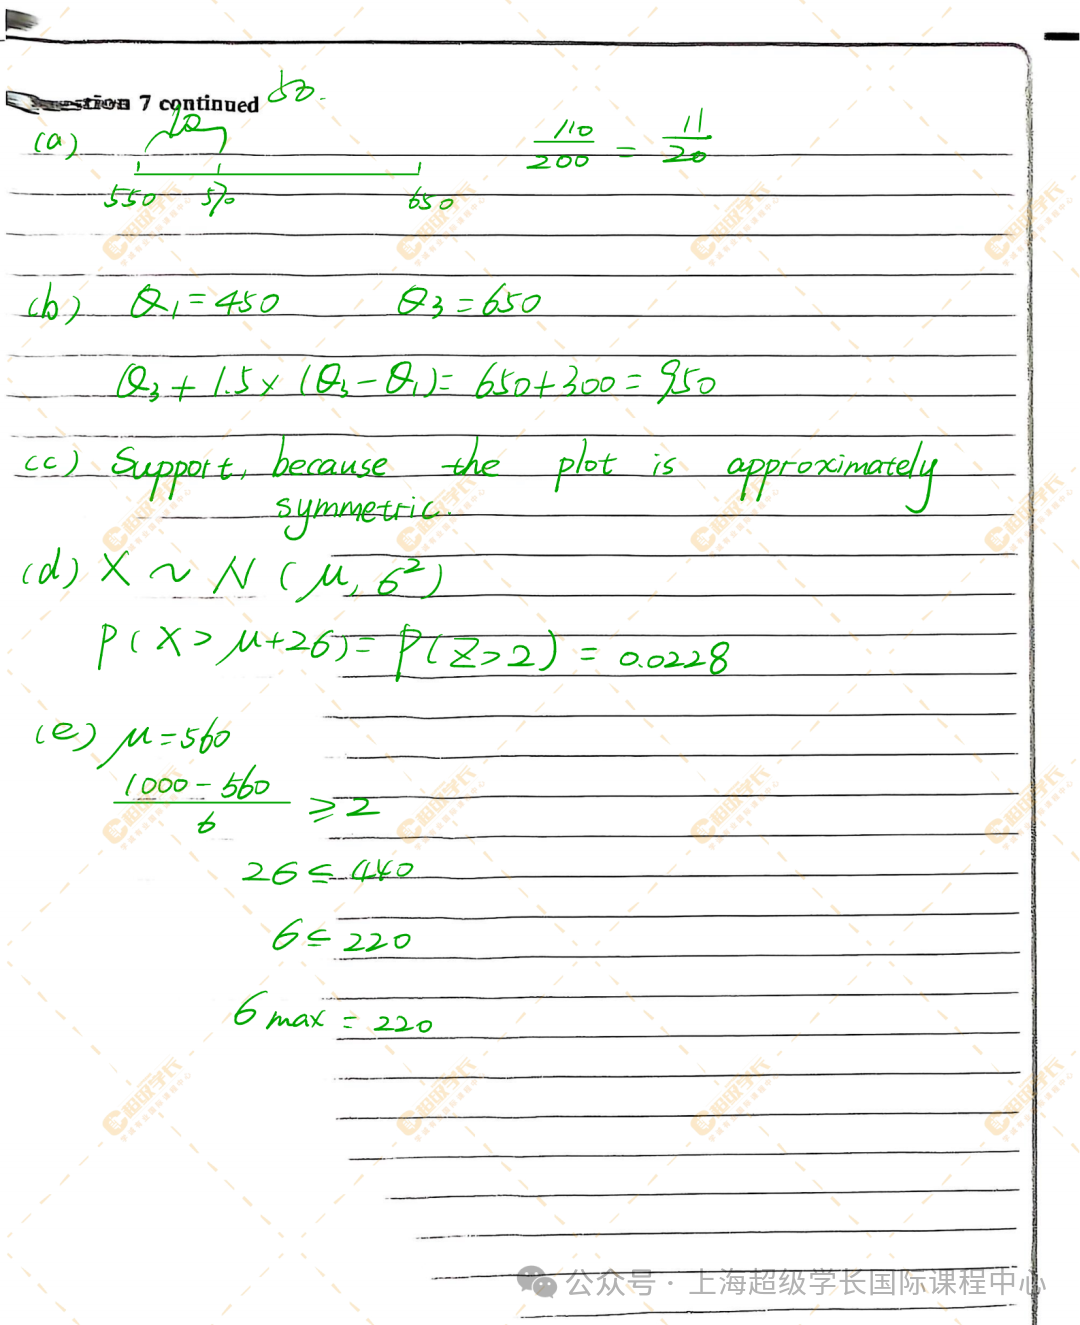 Question 7 continued
50.
(a)
20
110/200 = 11/20
550 570 650
(b) Q₁ = 450 Q₃ = 650
Q₃ + 1.5 × (Q₃ - Q₁) = 650 + 300 = 950
(c) Support, because the plot is approximately
symmetric.
(d) X ~ N (μ, σ²)
P(X > μ+2σ) = P(Z > 2) = 0.0228
(e) μ = 560
(1000 - 560)/σ ≥ 2
2σ ≤ 440
σ ≤ 220
σ max = 220
公众号 · 上海超级学长国际课程中心